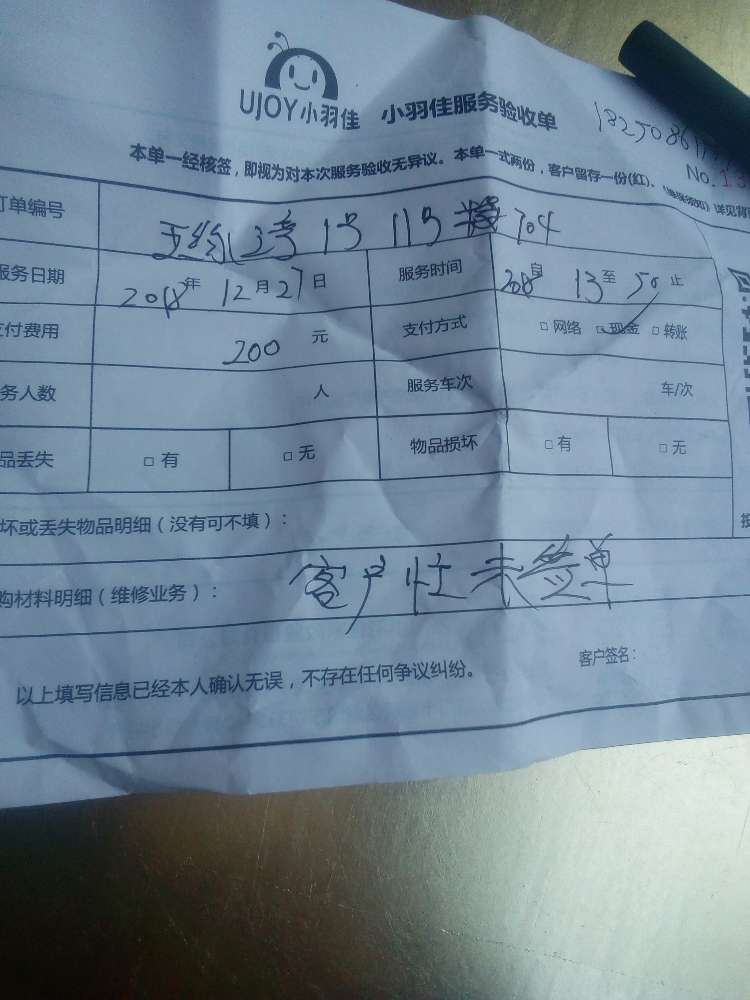 UJOY小羽佳 小羽佳服务验收单
No.
本单一经核签，即视为对本次服务验收无异议。本单一式两份，客户留存一份(红)、
订单编号 1号 704
服务日期 2018年12月27日 服务时间 自 13至50止
支付费用 200元 支付方式 □网络 □现金 □转账
务人数 人 服务车次 车/次
品丢失 □有 □无 物品损坏 □有 □无
坏或丢失物品明细（没有可不填）：
购材料明细（维修业务）： 客户 未签单
以上填写信息已经本人确认无误，不存在任何争议纠纷。 客户签名：